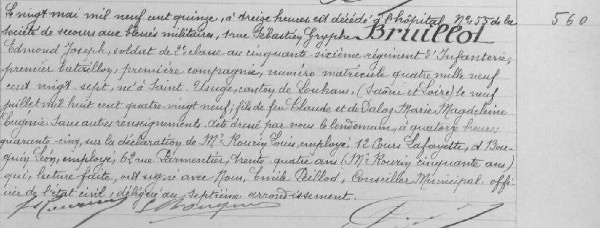 Le vingt mai mil neuf cent quinze, à treize heures est décédé à l'hôpital Nº 55 de la
société de secours aux blessés militaires, 1 rue Sébastien Gryphe Bruillot
560
Edmond Joseph, soldat de 2e classe au cinquante sixième régiment d'Infanterie,
premier bataillon, première compagnie, numéro matricule quatre mille neuf
cent vingt sept, né à Saint Usuge, canton de Louhans, (Saône et Loire) le neuf
juillet mil huit cent quatre vingt neuf; fils de feu Claude et de Daloz Marie Magdeleine
Eugénie Sans autres renseignements. Acte dressé par nous le lendemain, à quatorze heures
quarante-cinq, sur la déclaration de Mrs Rourin Louis, employé, 12 Cours Lafayette, & Boc-
quin Léon, employé, 62 rue Parmentier, trente quatre ans (Mr Rourin cinquante ans)
qui, lecture faite, ont signé avec Nous, Emile Peillod, Conseiller Municipal offi-
cier de l'état civil, délégué au septième arrondissement.